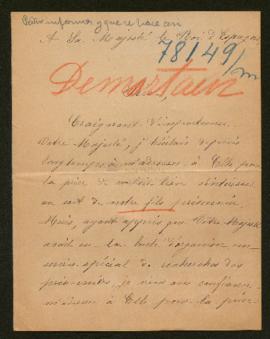 A Sa Majesté le Roi d'Espagne
78149/m
Demortain
Sire,
Craignant d'importuner
Votre Majesté, j'hésitais depuis
longtemps à m'adresser à Elle pour
la prier de vouloir bien s'intéresser
au sort de notre fils prisonnier.
Mais, ayant appris que Votre Majesté
avait eu la bonté d'organiser un
service spécial de recherches des
prisonniers, je viens avec confiance
m'adresser à Elle pour la prier